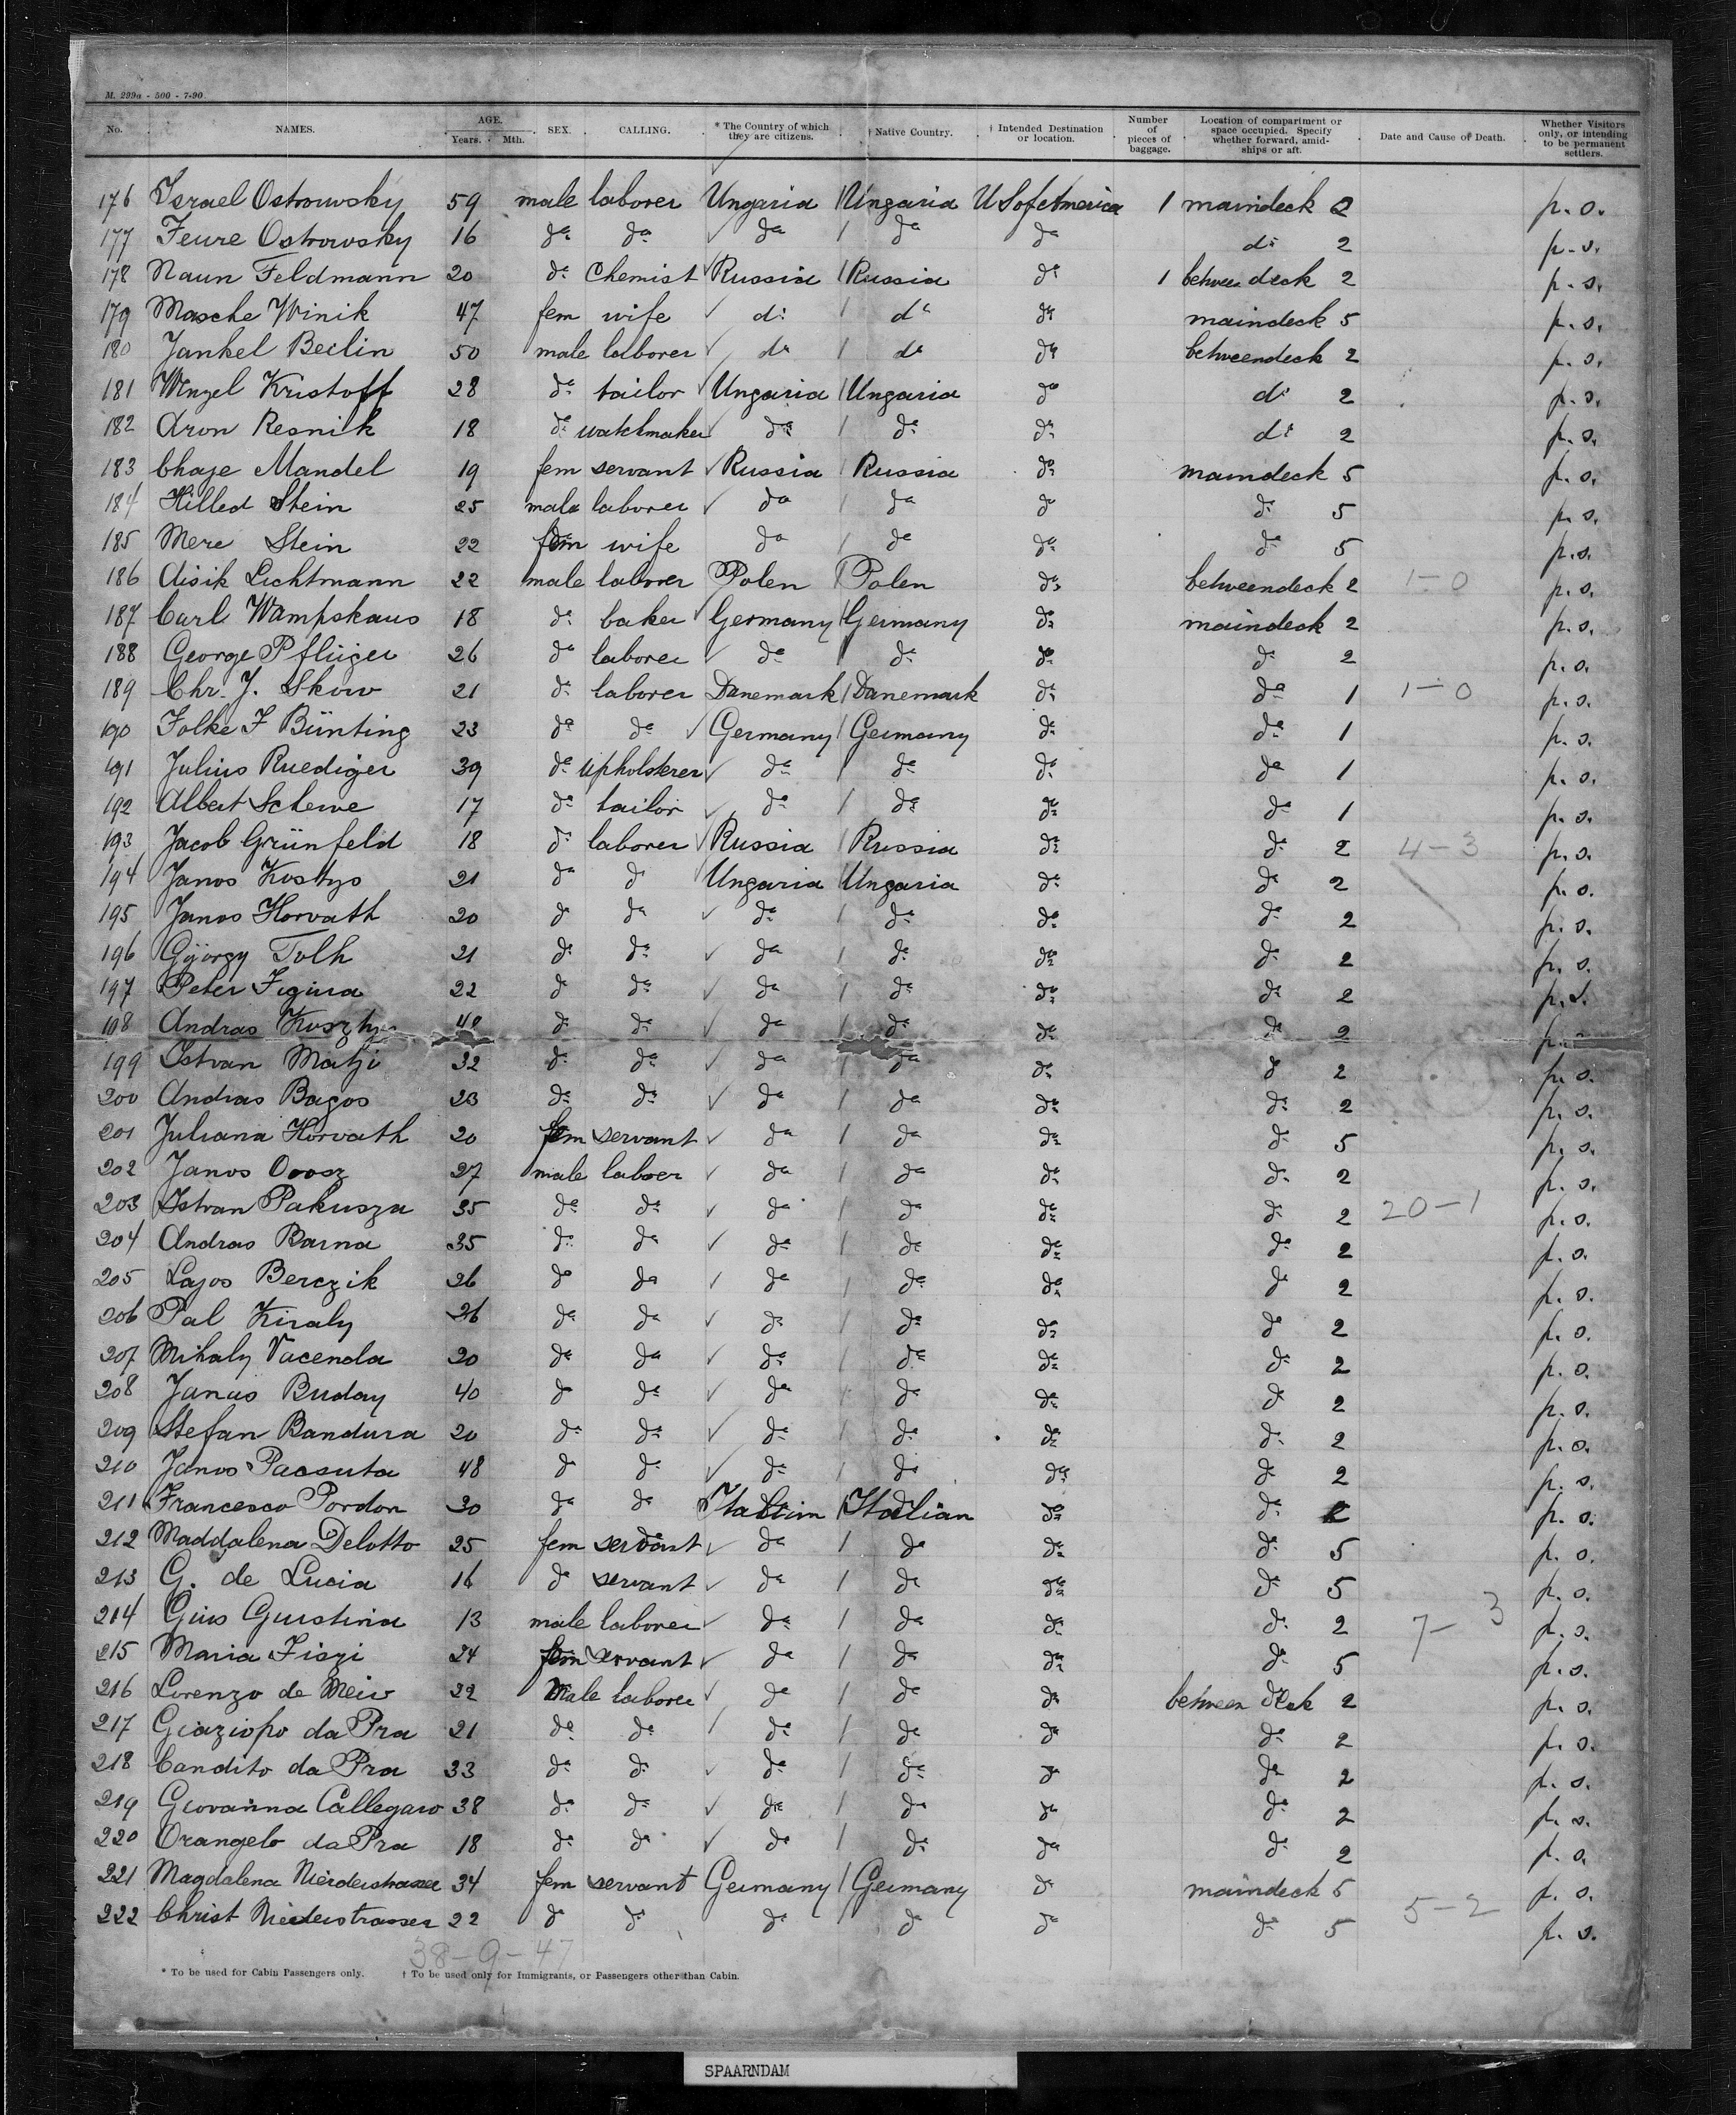 M. 299a - 500 - 7-90.
No. NAMES. AGE. Years. Mth. SEX. CALLING. * The Country of which they are citizens. † Native Country. † Intended Destination or location. Number of pieces of baggage. Location of compartment or space occupied. Specify whether forward, amidships or aft. Date and Cause of Death. Whether Visitors only, or intending to be permanent settlers.
176 Israel Ostrowsky 59 male laborer Ungaria Ungaria U S of America 1 maindeck 2 p. s.
177 Feure Ostrowsky 16 do do do do do do 2 p. s.
178 Naun Feldmann 20 do Chemist Russia Russia do 1 between deck 2 p. s.
179 Masche Winik 47 fem wife do do do maindeck 5 p. s.
180 Jankel Beilin 50 male laborer do do do betweendeck 2 p. s.
181 Wenzel Kristoff 28 do tailor Ungaria Ungaria do do 2 p. s.
182 Aron Resnik 18 do watchmaker do do do do 2 p. s.
183 Chaje Mandel 19 fem servant Russia Russia do maindeck 5 p. s.
184 Hilled Stein 25 male laborer do do do do 5 p. s.
185 Mere Stein 22 fem wife do do do do 5 p. s.
186 Aisik Lichtmann 22 male laborer Polen Polen do betweendeck 2 1-0 p. s.
187 Carl Wampskaus 18 do baker Germany Germany do maindeck 2 p. s.
188 George Pflüger 26 do laborer do do do do 2 p. s.
189 Chr. J. Skow 21 do laborer Danemark Danemark do do 1 1-0 p. s.
190 Folke F Bünting 23 do do Germany Germany do do 1 p. s.
191 Julius Ruediger 39 do upholsterer do do do do 1 p. s.
192 Albert Schewe 17 do tailor do do do do 1 p. s.
193 Jacob Grünfeld 18 do laborer Russia Russia do do 2 4-3 p. s.
194 Janos Kostyo 21 do do Ungaria Ungaria do do 2 p. s.
195 Janos Horvath 20 do do do do do do 2 p. s.
196 György Tolh 21 do do do do do do 2 p. s.
197 Peter Figura 22 do do do do do do 2 p. s.
198 Andras 40 do do do do do do 2 p.
199 Istvan Matji 32 do do do do do do 2 p. s.
200 Andras Bagos 23 do do do do do do 2 p. s.
201 Juliana Horvath 20 fem servant do do do do 5 p. s.
202 Janos Orosz 27 male laborer do do do do 2 p. s.
203 Istvan Pakusza 35 do do do do do do 2 20-1 p. s.
204 Andras Barna 35 do do do do do do 2 p. s.
205 Lajos Berczik 26 do do do do do do 2 p. s.
206 Pal Kiraly 26 do do do do do do 2 p. s.
207 Mihaly Vacenda 20 do do do do do do 2 p. s.
208 Janus Buday 40 do do do do do do 2 p. s.
209 Stefan Bandura 20 do do do do do do 2 p. s.
210 Janos Pacsuta 48 do do do do do do 2 p. s.
211 Francesco Pordon 30 do do Italian Italian do do 2 p. s.
212 Maddalena Delotto 25 fem servant do do do do 5 p. s.
213 G. de Lucia 16 do servant do do do do 5 p. s.
214 Gius Giustina 13 male laborer do do do do 2 7-3 p. s.
215 Maria Fiszi 24 fem servant do do do do 5 p. s.
216 Lorenzo de Meio 22 male laborer do do do between deck 2 p. s.
217 Giaziopo da Pra 21 do do do do do do 2 p. s.
218 Candito da Pra 33 do do do do do do 2 p. s.
219 Giovanna Callegaro 38 do do do do do do 2 p. s.
220 Orangelo da Pra 18 do do do do do do 2 p. s.
221 Magdalena Niederstrasser 34 fem servant Germany Germany do maindeck 5 p. s.
222 Christ Niederstrasser 22 do do do do do do 5 5-2 p. s.
38-9-47
* To be used for Cabin Passengers only. † To be used only for Immigrants, or Passengers other than Cabin.
SPAARNDAM